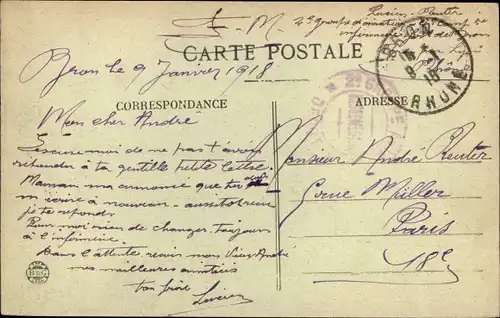 F. M.
Lucien Reuter
2e groupe d'aviation
infirmerie
CARTE POSTALE
BRON
RHÔNE
Bron le 9 Janvier 1918
CORRESPONDANCE
ADRESSE
Mon cher André
Excuse moi de ne pas t'avoir
répondre à ta gentille petite lettre.
Maman m'a annoncé que tu
m'écrire à nouveau - aussitôt reçu
je te repondr
Pour moi rien de changer. toujours
à l'infirmerie.
Dans l'attente recois mon vieux André
mes meilleures amitiées
ton frère
Lucien
Monsieur André Reuter
rue Muller
Paris
18e